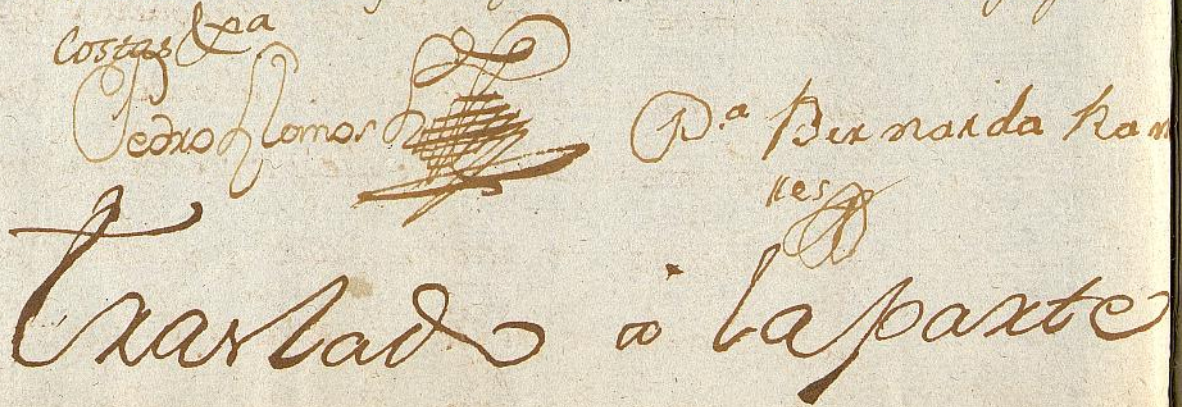 Costas &a
Pedro Romos Dª Bernarda Ram
res
Traslado a la parte